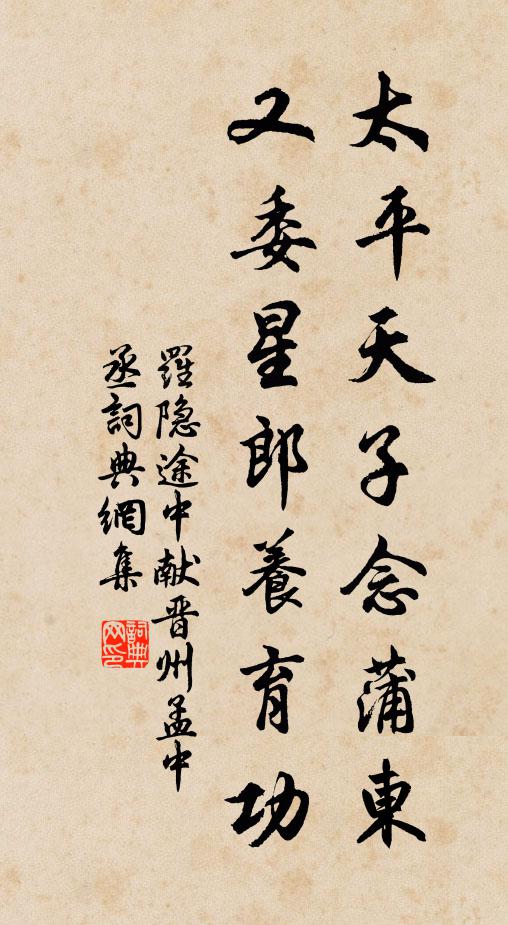 太平天子念蒲東
又委星郎養育功
羅隐途中献晋州孟中
丞詞典網集
詞典网印